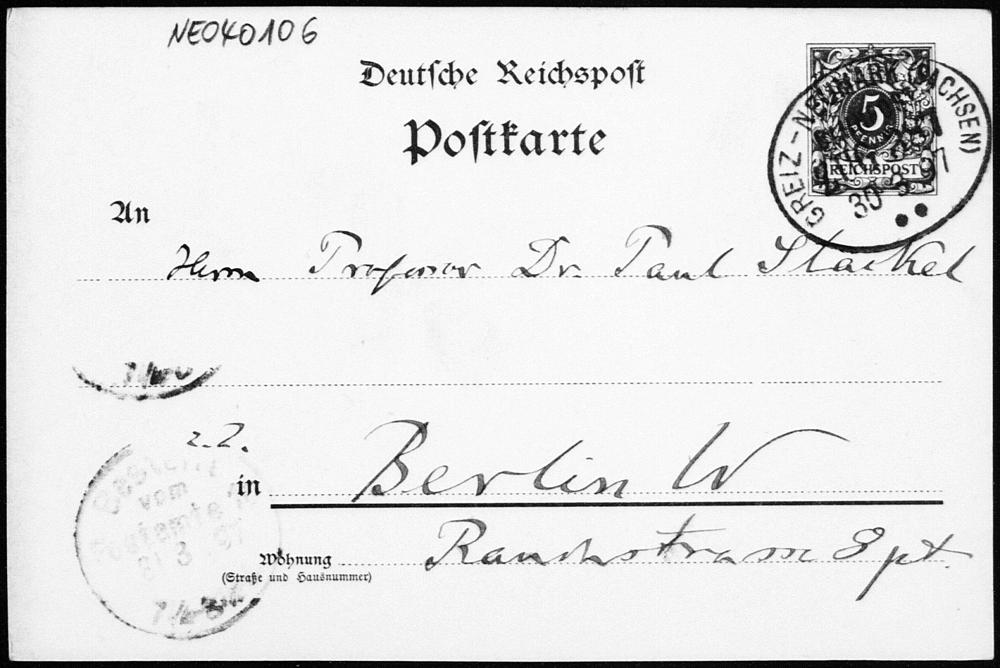 NE040106
Deutsche Reichspost
Postkarte
5
PFENNIG
REICHSPOST
GREIZ - NEUMARK (SACHSEN)
30 3 97
An
Herrn Professor Dr. Paul Stäckel
z. Z.
in Berlin W
Bestellt
vom
Postamte
31 3 97
Wohnung
(Straße und Hausnummer)
Rauchstrasse 8 pt.